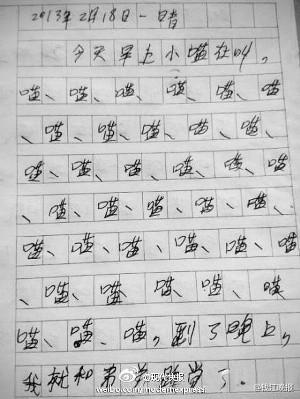 2013年2月18日 一 晴
今天早上小喵在叫,
喵、喵、喵、喵、喵、喵
、喵、喵、喵、喵、喵、
喵、喵、喵、喵、喵、喵
、喵、喵、喵、喵、喵、
喵、喵、喵、喵、喵、喵
、喵、喵、喵、喵、喵
喵、喵、喵,到了晚上,
我就和弟弟
@现代快报
weibo.com/modernexpress
@钱江晚报